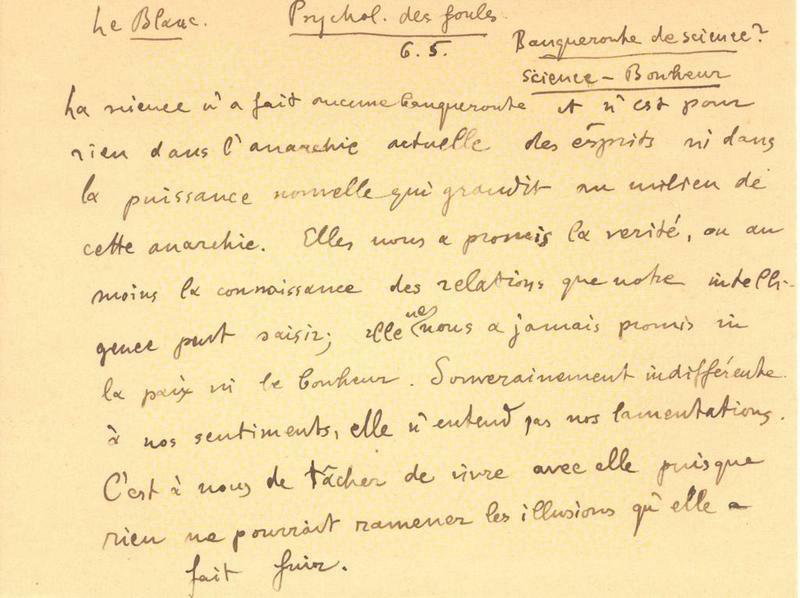 Le Blanc. Psychol. des foules.
6. 5. Banqueroute de science?
Science – Bonheur
La science n'a fait aucune banqueroute et n'est pour
rien dans l'anarchie actuelle des esprits ni dans
la puissance nouvelle qui grandit au milieu de
cette anarchie. Elles nous a promis la verité, ou au
moins la connaissance des relations que notre intelli-
gence peut saisir; elle ne nous a jamais promis ni
la paix ni le bonheur. Souverainement indifférente
à nos sentiments, elle n'entend pas nos lamentations.
C'est à nous de tâcher de vivre avec elle puisque
rien ne pourrait ramener les illusions qu'elle a
fait fuir.